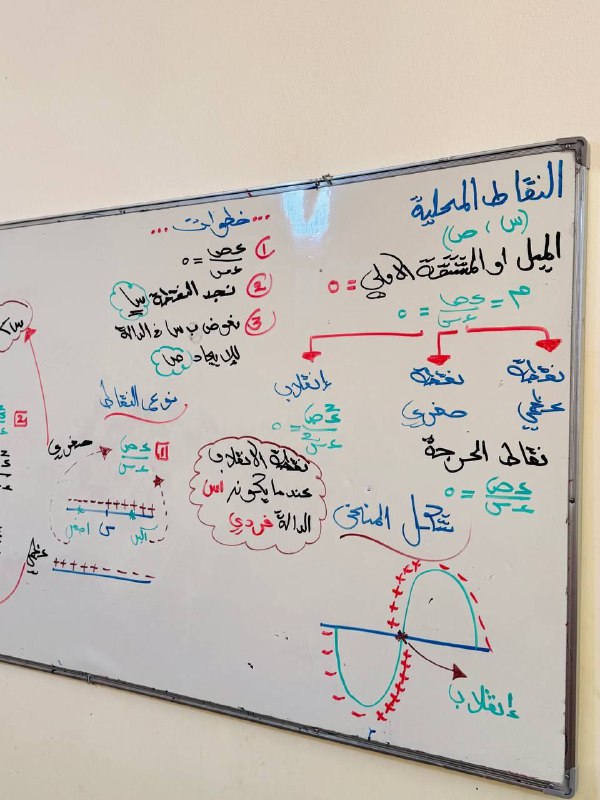 النقاط المحلية
(س ، ص)
الميل او المشتقة الاولى = ٠
م = ءص/ءس = ٠
نقطة عظمى
نقطة صغرى
إنقلاب
ء²ص/ءس² = ٠
نقاط الحرجة
ءص/ءس = ٠
شكل المنحنى
إنقلاب
خطوات...
① ءص/ءس = ٠
② نجد النقطة س
③ نعوض ب س في الدالة
لإيجاد ص
نوع النقاط
1 ءص/ءس
صغرى
اصغر س اكبر
+++++ - - - -
عظمى
نقطة الانقلاب
عندما يكون اس
الدالة فردي
2